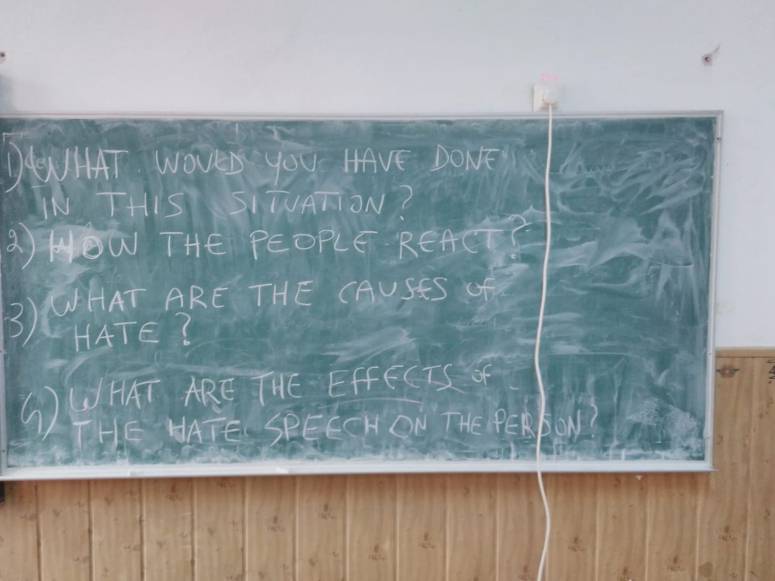 1) WHAT WOULD YOU HAVE DONE
IN THIS SITUATION?
2) HOW THE PEOPLE REACT?
3) WHAT ARE THE CAUSES OF
HATE?
4) WHAT ARE THE EFFECTS OF
THE HATE SPEECH ON THE PERSON?